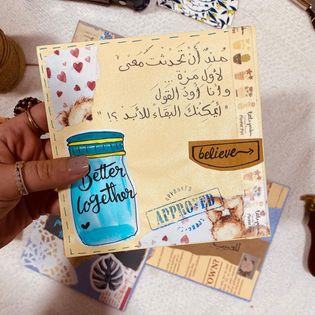 مُنذُ أن تحدثت معي
لأول مرة
وأنا أودّ القول
"أيمكنك البقاء للأبد ؟!"
believe
Better
together
APPROVED
APPROVED
OWN?